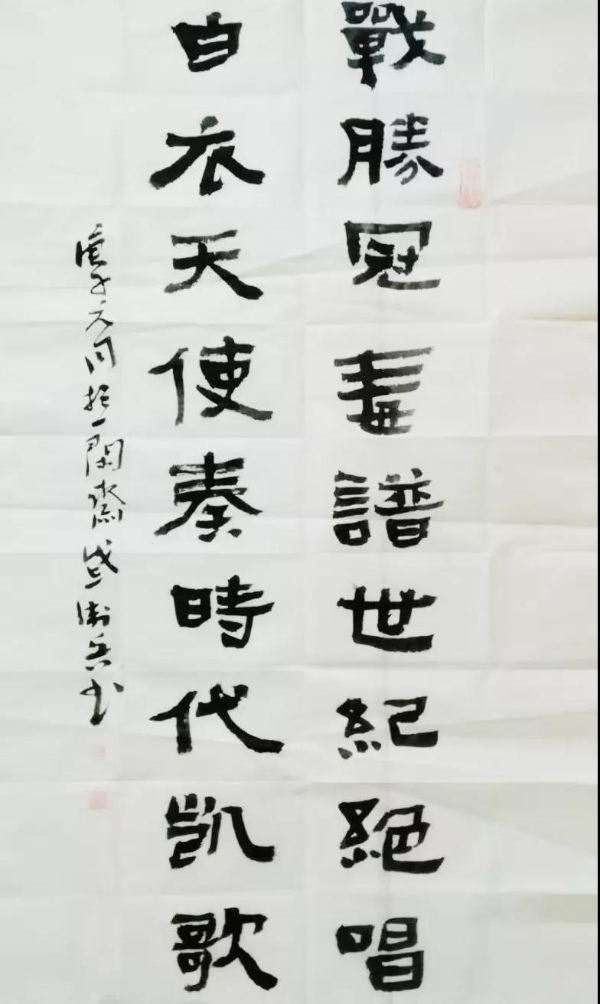 戰勝冠毒譜世紀絶唱
白衣天使奏時代凱歌
庚子元月於一閑齋衛兵书